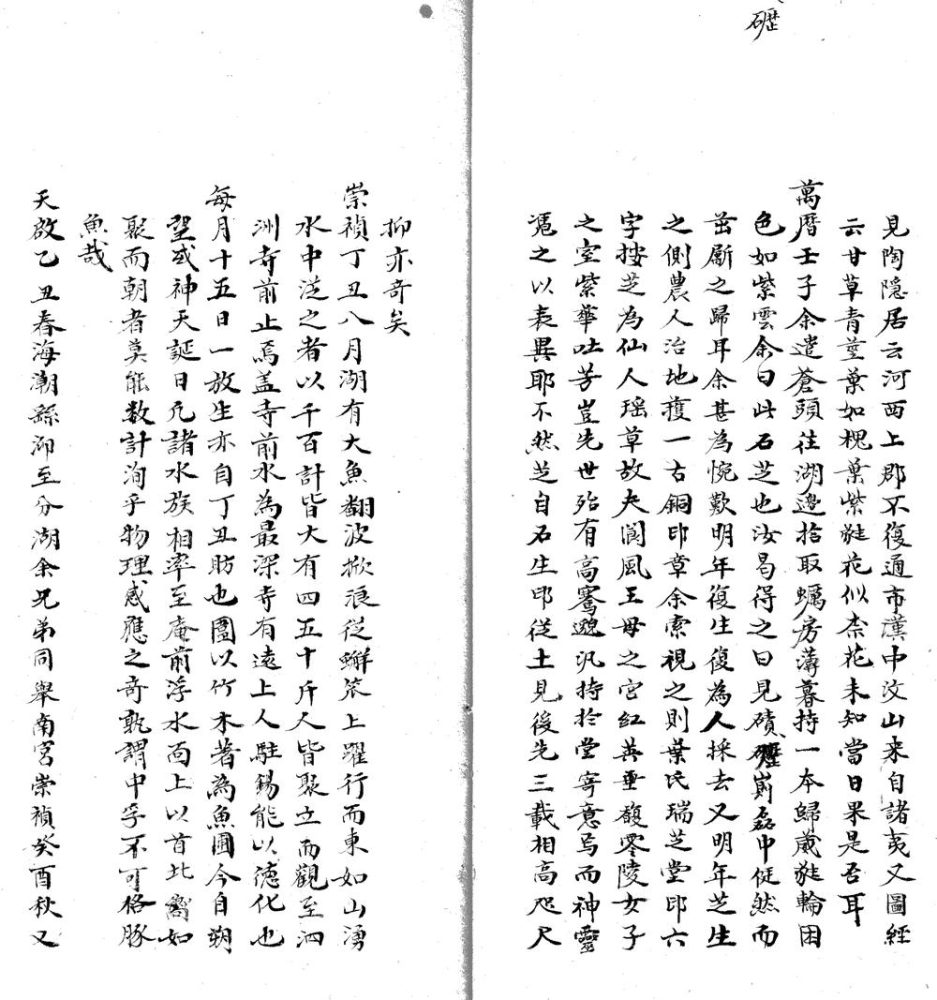 礰
見陶隱居云河西上郡不復通市漢中汶山来自諸夷又圖經
云甘草青莖葉如槐葉紫蕤花似柰花未知當日果是否耳
萬曆壬子余遣蒼頭往湖邊拾取蠣房薄暮持一本歸葳蕤輪囷
色如紫雲余曰此石芝也汝曷得之曰見磧礰崱磊中徒然而
茁斸之歸耳余甚為惋歎明年復生復為人採去又明年芝生
之側農人治地獲一古銅印章余索視之則葉氏瑞芝堂印六
字按芝為仙人瑶草故夫閬風王母之宮紅英垂馥零陵女子
之室紫華吐芳豈先世殆有高騫邈汎持於堂寄意焉而神靈
憑之以表異耶不然芝自石生印從土見後先三載相高咫尺
抑亦奇矣
崇禎丁丑八月湖有大魚翻波掀浪從蠏籪上躍行而東如山湧
水中從之者以千百計皆大有四五十斤人皆聚立而觀至泗
洲寺前止焉盖寺前水為最深寺有遠上人駐錫能以德化也
每月十五日一放生亦自丁丑昉也圍以竹木著為魚圃今自朔
望或神天誕日凡諸水族相率至庵前浮水而上以首北嚮如
聚而朝者莫能数計洵乎物理感應之奇孰謂中孚不可格豚
魚哉
天啟乙丑春海潮繇泖至分湖余兄弟同舉南宮崇禎癸酉秋又